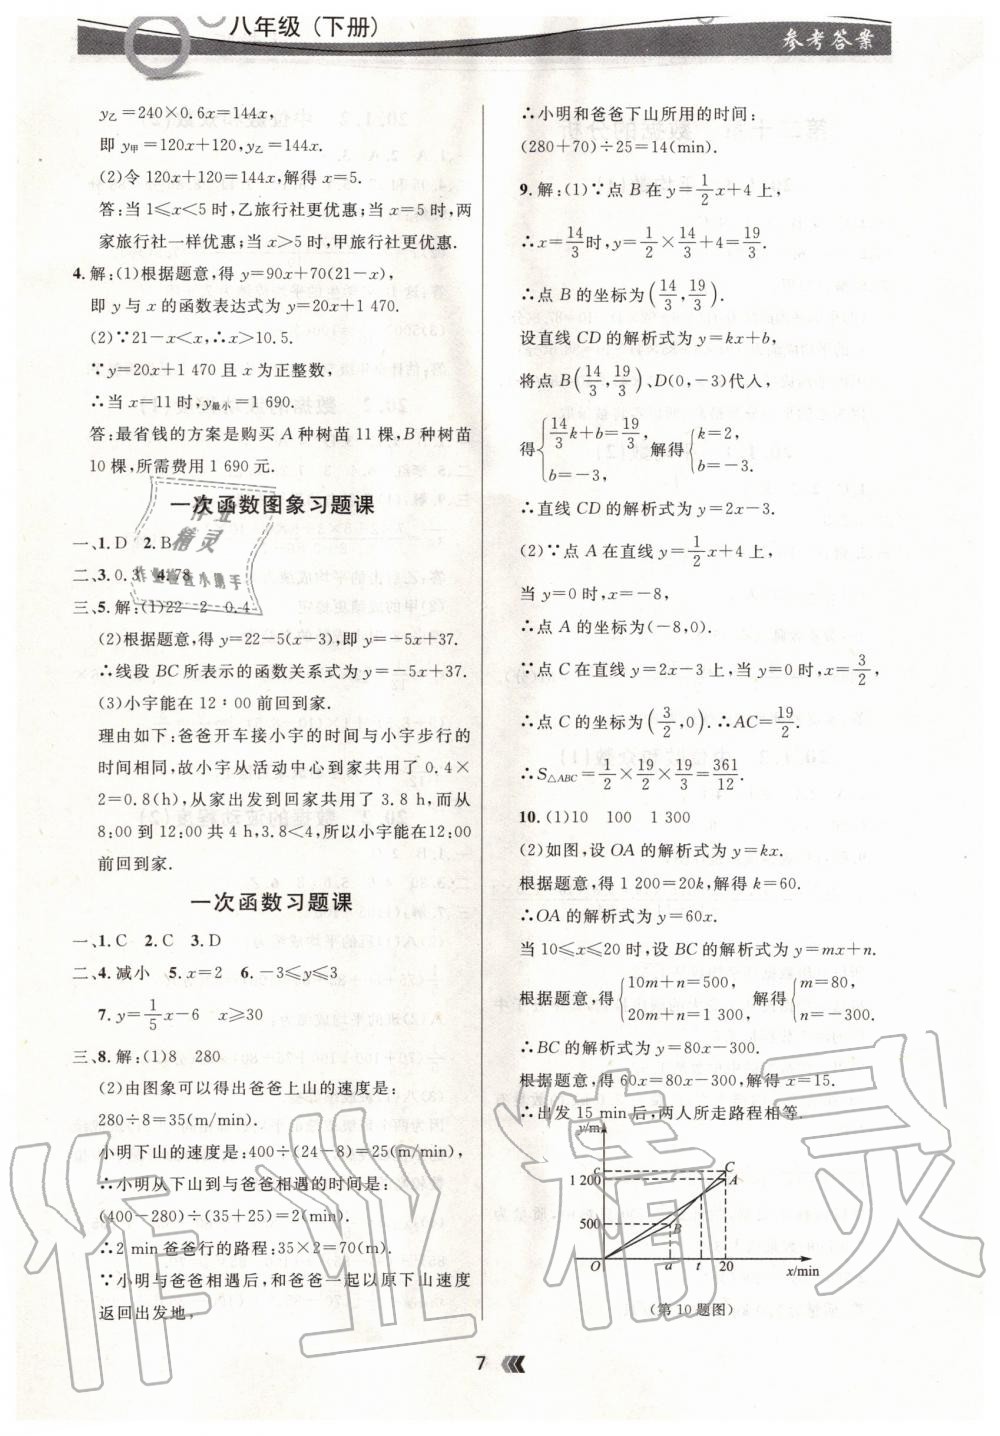 八年级（下册）
参考答案
y乙=240×0.6x=144x,
即 y甲=120x+120,y乙=144x.
(2)令 120x+120=144x,解得 x=5.
答:当 1≤x<5 时,乙旅行社更优惠;当 x=5 时,两
家旅行社一样优惠;当 x>5 时,甲旅行社更优惠.
4.解:(1)根据题意,得 y=90x+70(21-x),
即 y 与 x 的函数表达式为 y=20x+1 470.
(2)∵21-x<x,∴x>10.5.
∵y=20x+1 470 且 x 为正整数,
∴当 x=11 时,y最小=1 690.
答:最省钱的方案是购买 A 种树苗 11 棵,B 种树苗
10 棵,所需费用 1 690 元.
一次函数图象习题课
一、1.D 2.B
二、3.0.3 4.78
三、5.解:(1)22 2 0.4
(2)根据题意,得 y=22-5(x-3),即 y=-5x+37.
∴线段 BC 所表示的函数关系式为 y=-5x+37.
(3)小宇能在 12:00 前回到家.
理由如下:爸爸开车接小宇的时间与小宇步行的
时间相同,故小宇从活动中心到家共用了 0.4×
2=0.8(h),从家出发到回家共用了 3.8 h,而从
8:00 到 12:00 共 4 h,3.8<4,所以小宇能在12:00
前回到家.
一次函数习题课
一、1.C 2.C 3.D
二、4.减小 5.x=2 6.-3≤y≤3
7.y=1/5x-6 x≥30
三、8.解:(1)8 280
(2)由图象可以得出爸爸上山的速度是:
280÷8=35(m/min).
小明下山的速度是:400÷(24-8)=25(m/min),
∴小明从下山到与爸爸相遇的时间是:
(400-280)÷(35+25)=2(min).
∴2 min 爸爸行的路程:35×2=70(m).
∵小明与爸爸相遇后,和爸爸一起以原下山速度
返回出发地,
∴小明和爸爸下山所用的时间:
(280+70)÷25=14(min).
9.解:(1)∵点 B 在 y=1/2x+4 上,
∴x=14/3时,y=1/2×14/3+4=19/3.
∴点 B 的坐标为(14/3,19/3).
设直线 CD 的解析式为 y=kx+b,
将点 B(14/3,19/3)、D(0,-3)代入,
得{14/3k+b=19/3, b=-3, 解得{k=2, b=-3.
∴直线 CD 的解析式为 y=2x-3.
(2)∵点 A 在直线 y=1/2x+4 上,
当 y=0 时,x=-8,
∴点 A 的坐标为(-8,0).
∵点 C 在直线 y=2x-3 上,当 y=0 时,x=3/2,
∴点 C 的坐标为(3/2,0).∴AC=19/2.
∴S△ABC=1/2×19/2×19/3=361/12.
10.(1)10 100 1 300
(2)如图,设 OA 的解析式为 y=kx.
根据题意,得 1 200=20k,解得 k=60.
∴OA 的解析式为 y=60x.
当 10≤x≤20 时,设 BC 的解析式为 y=mx+n.
根据题意,得{10m+n=500, 20m+n=1 300, 解得{m=80, n=-300.
∴BC 的解析式为 y=80x-300.
根据题意,得 60x=80x-300,解得 x=15.
∴出发 15 min 后,两人所走路程相等.
y/m
c
C
1 200
A
500
B
O a t 20 x/min
(第 10 题图)
7
作业
精灵
作业检查小助手
作业精灵